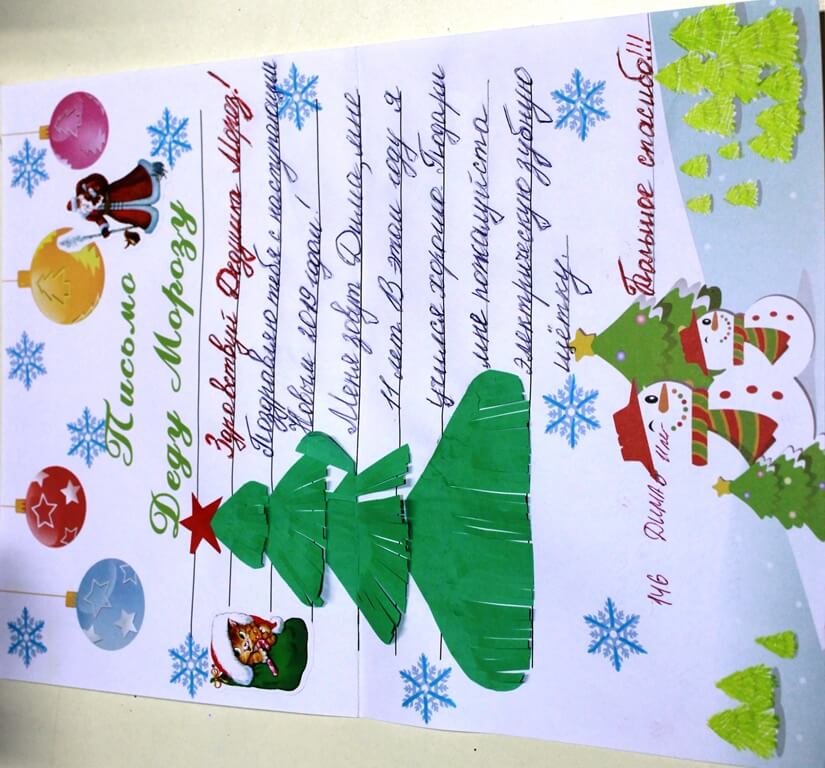 Письмо
Деду Морозу
Здравствуй Дедушка Мороз!
Поздравляю тебя с наступающим
Новым 2019 годом!
Меня зовут Дима, мне
11 лет. В этом году я
учился хорошо. Подари
мне пожалуйста
электрическую зубную
щётку.
Большое спасибо!!!
146 Дима